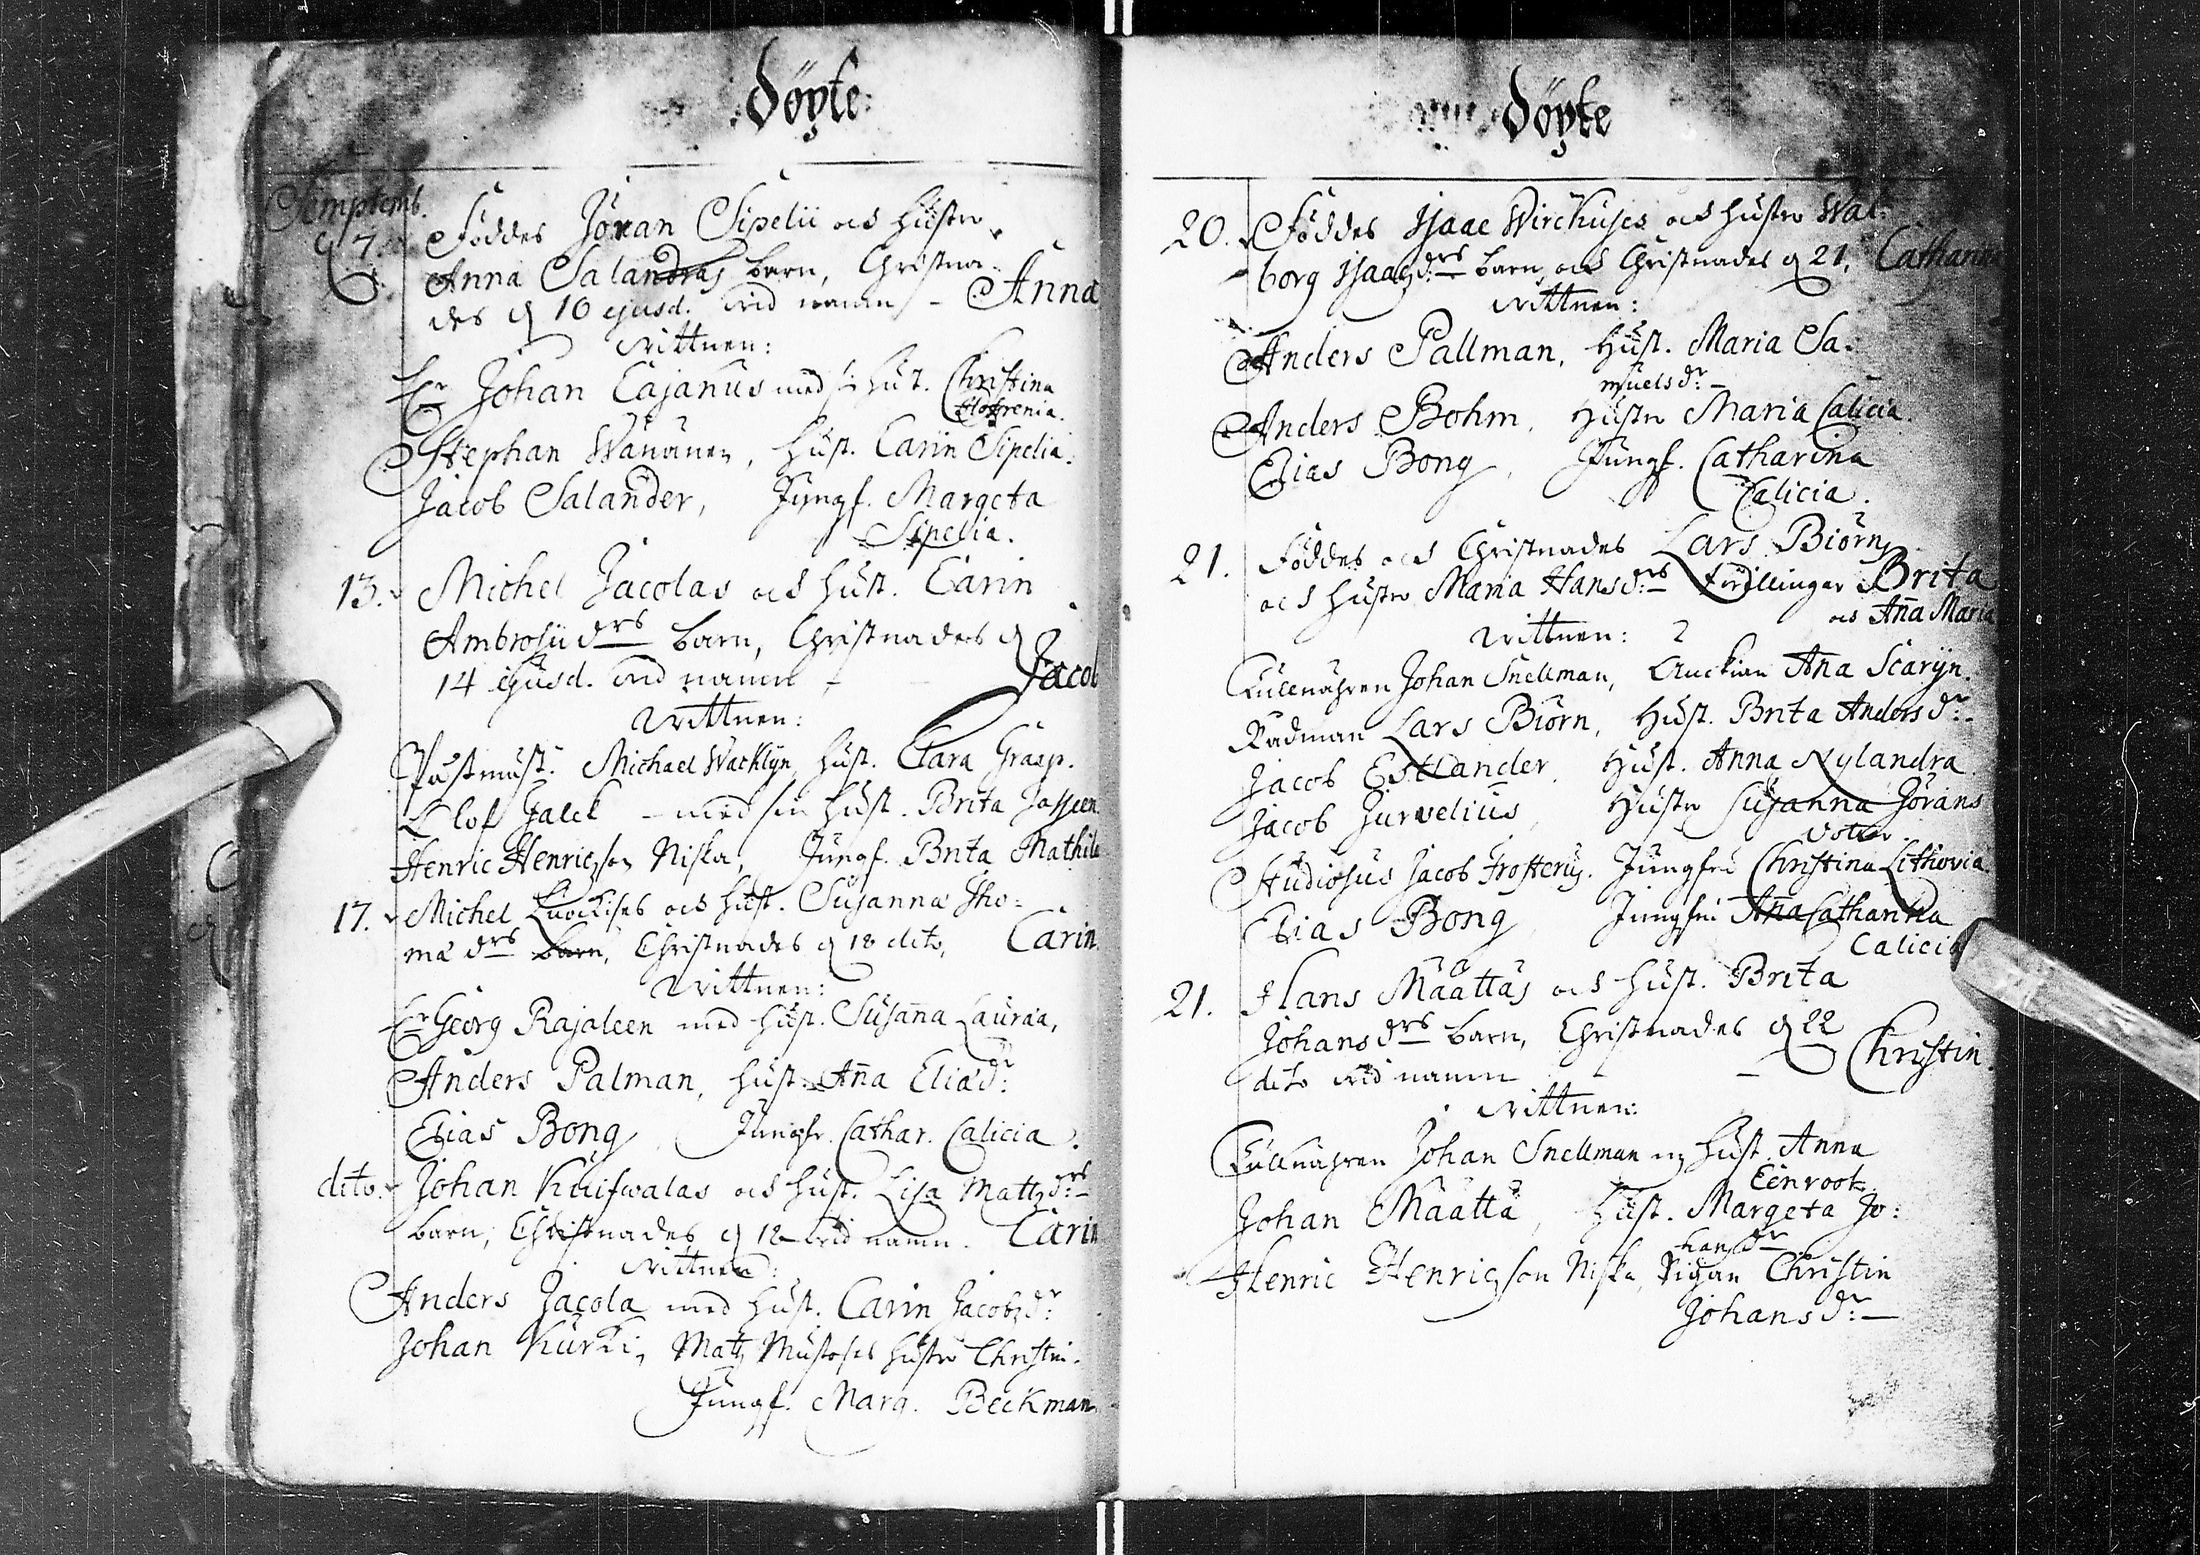 Döpte:
Septemb.
d 7. Föddes Jöran Sipelii och hustro
Anna Salandras barn, Christna-
des d 10 ejusd. vid namn - Anna
Vittnen:
Hr Johan Cajanus med sin hust. Christina
Stephan Wänänen, hust. Carin Sipelia.
Jacob Salander, Jungf. Margeta
Sipelia.
13. Michel Jacolas och hust. Carin
Ambrosii drs barn, Christnades d
14 ejusd. vid namn - Jacob
Vittnen:
Påstmäst. Michael Wacklyn, hust. Clara Grasp.
Olof Jalck - med sin hust. Brita Jasseen
Henric Henricsson Niska, Jungf. Brita Mathil
17. Michel Luockises och hust. Susanna Tho-
mæ drs barn, Christnades d 18 dito, Carin.
Vittnen:
Hr Georg Rajaleen med hust. Susanna Lauræa,
Anders Palman, hust. Anna Eliædr:
Elias Bong, Jungfr. Cathar. Calicia.
dito. Johan Kuifwalas och hust. Lisa Matzdrs
barn, Christnades d 18 vid namn. Carin
Vittnen:
Anders Jacola med hust. Carin Jacobzdr:
Johan Kurki, Matz Mustoses hustro Christin.
Jungf. Marg. Beckman
Döpte
20. Föddes Isaac Wirckuses och hustro Wal-
borg Isaacsdrs barn, och Christnades d 21, Catharina
Vittnen:
Anders Pallman, Hust. Maria Sa-
muelsdr:
Anders Bohm, Hustro Maria Calicia
Elias Bong, Jungf. Catharina
Calicia.
21. Föddes och Christnades Lars Biörns
och hustro Maria Hansdrs tvillingar Brita
och Anna Maria
Vittnen:
Tullnähren Johan Snellman, Änckian Anna Scaryn.
Rådman Lars Biörn, Hust. Brita Andersdr:
Jacob Estlander, Hust. Anna Nylandra
Jacob Jurvelius, Hustro Susanna Jörans
dotter.
Studiosus Jacob Frosterus. Jungfru Christina Lithovia
Elias Bong, Jungfru Anna Catharina
Calicia
21. Hans Määttäs och hust. Brita
Johansdrs barn, Christnades d 22
dito vid namn - - Christin.
Vittnen:
Tullnähren Johan Snellman, hust. Anna
Eenroot
Johan Määttä, hust. Margeta Jo-
hansdr
Henric Henricsson Niska, Pigan Christin
Johansdr: